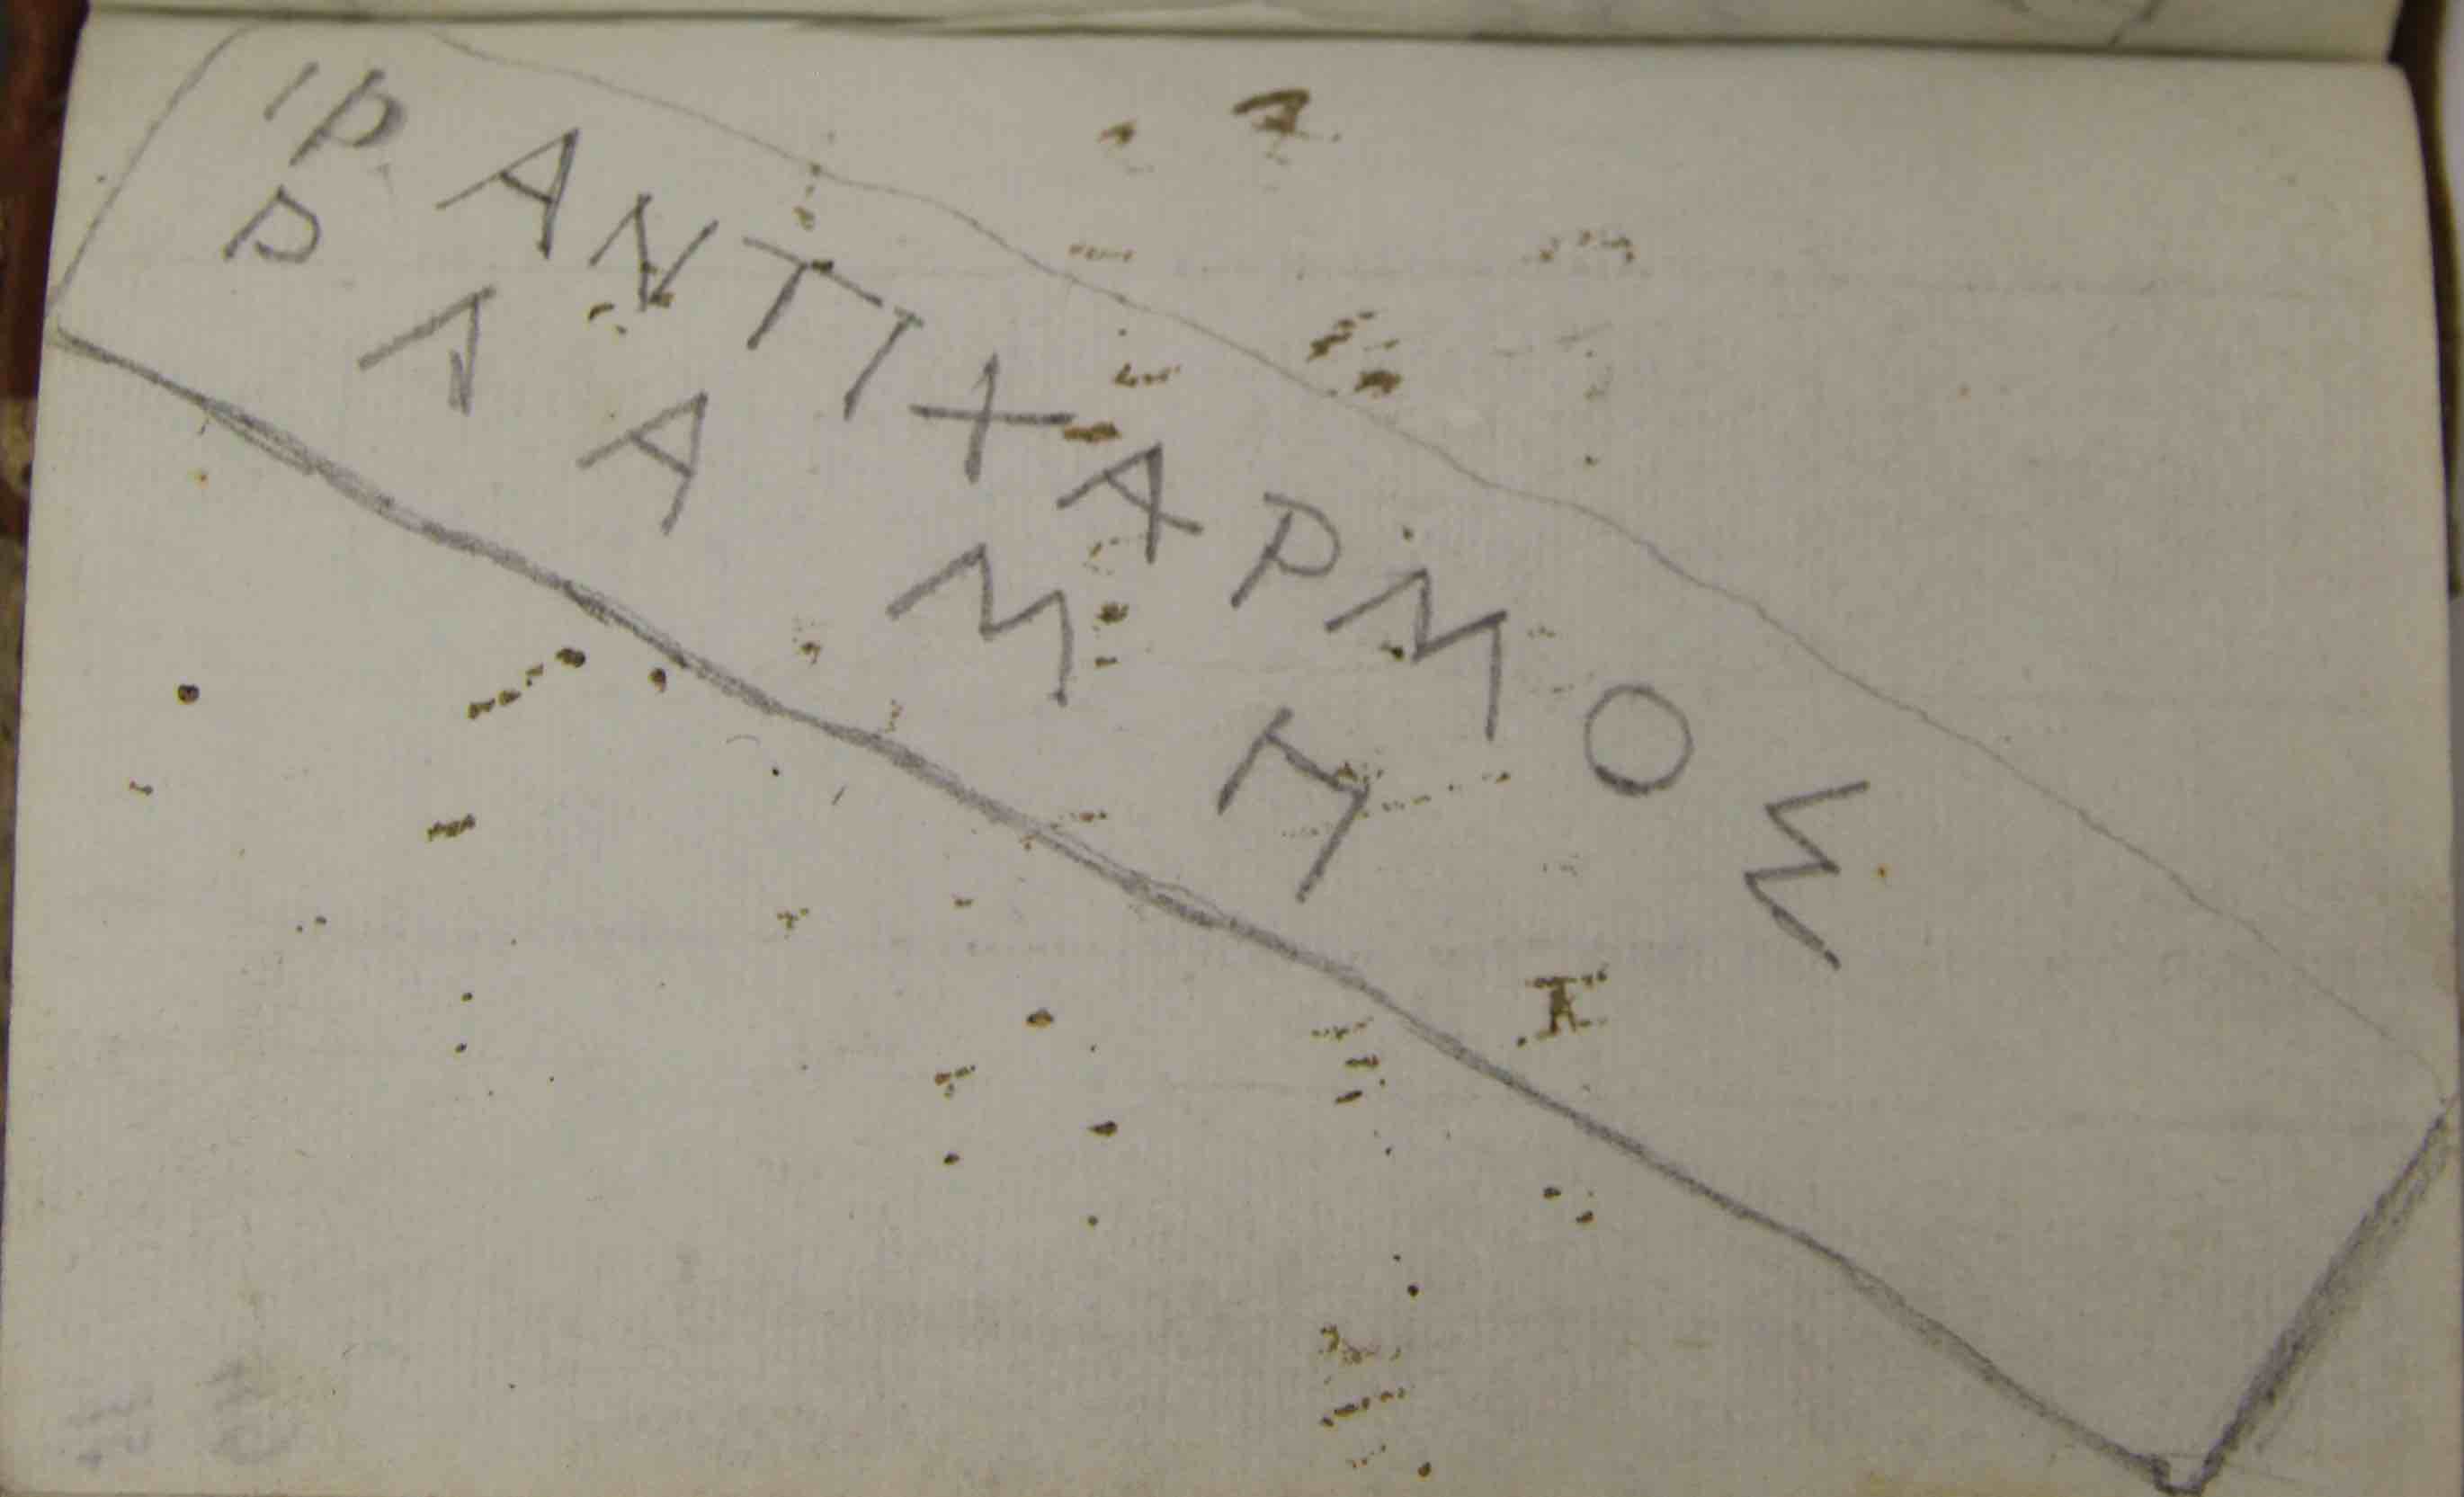 ΙΡΑΝΤΙΧΑΡΜΟΣ
ΡΛΑΜΠ